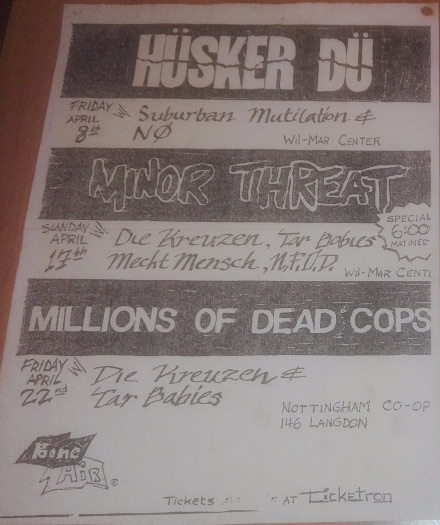 HÜSKER DÜ
FRIDAY APRIL 8th W/ Suburban Mutilation &
NØ
WIL-MAR CENTER
MINOR THREAT
SPECIAL 6:00 MATINEE
SUNDAY APRIL 17th W/ Die Kreuzen, Tar Babies
Mecht Mensch, N.F.U.D.
WIL-MAR CENT
MILLIONS OF DEAD COPS
FRIDAY APRIL 22nd W/ Die Kreuzen &
Tar Babies
NOTTINGHAM CO-OP
146 LANGDON
Bone Air
Tickets AT Ticketron